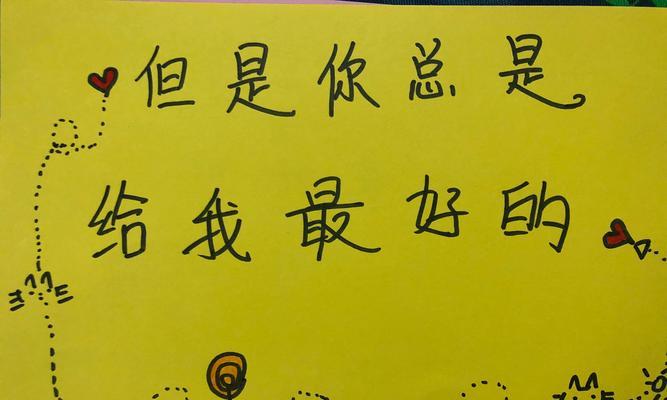 但是你总是
给我最好的